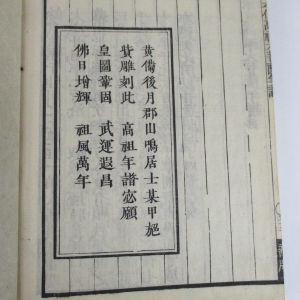 黄備後月郡山鳴居士某甲施
貲雕刻此　高祖年譜寔願
皇圖鞏固　武運遐昌
佛日增輝　祖風萬年